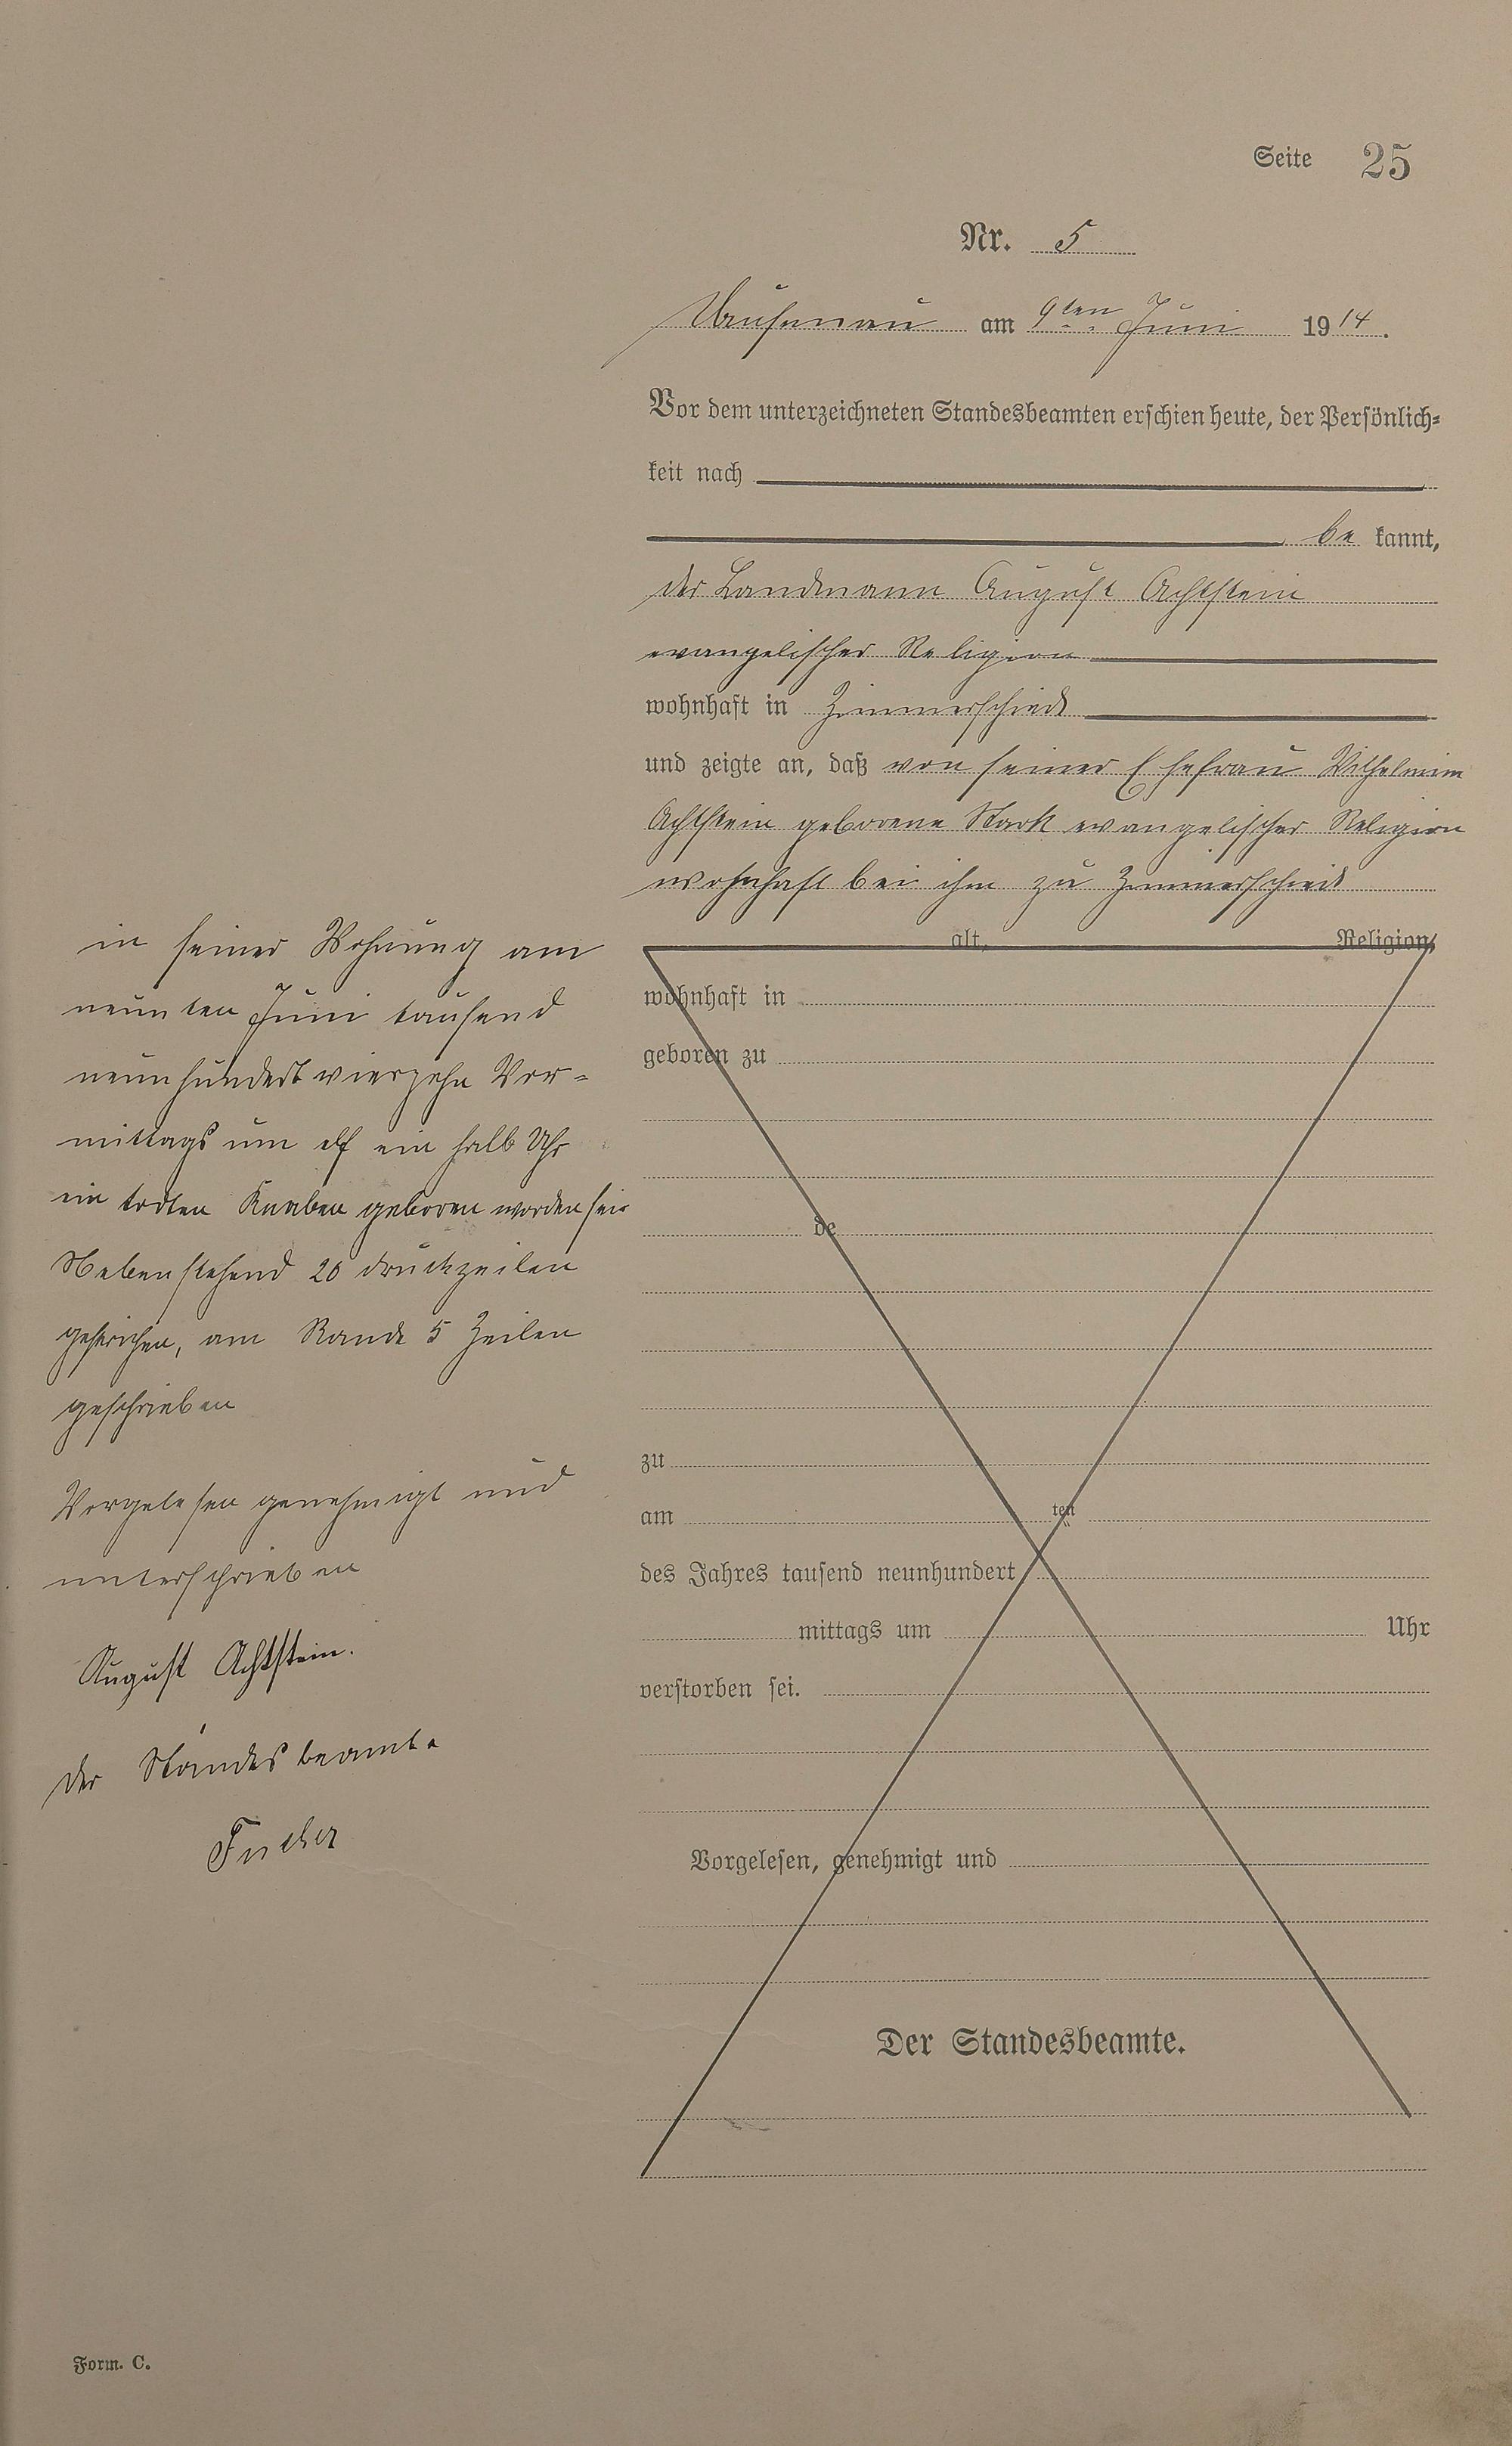 Seite 25
Nr. 5
am 9ten Juni 1914.
Vor dem unterzeichneten Standesbeamten erschien heute, der Persönlich-
keit nach
be kannt,
der Landmann August Achtstein
evangelischer Religion
wohnhaft in Zimmerschied
und zeigte an, daß von seiner Ehefrau Wilhelmine
Achtstein geborene Stark evangelischer Religion
wohnhaft bei ihm zu Zimmerschied
alt, Religion,
wohnhaft in
geboren zu
de
zu
am ten
des Jahres tausend neunhundert
mittags um Uhr
verstorben sei.
Vorgelesen, genehmigt und
Der Standesbeamte.
in seiner Wohnung am
neunten Juni tausend
neunhundert vierzehn Vor-
mittags um elf ein halb Uhr
ein todten Knaben geboren worden sei
Nebenstehend 20 Druckzeilen
gestrichen, am Rande 5 Zeilen
geschrieben
Vorgelesen genehmigt und
unterschrieben
August Achtstein.
Der Standesbeamte
Form. C.